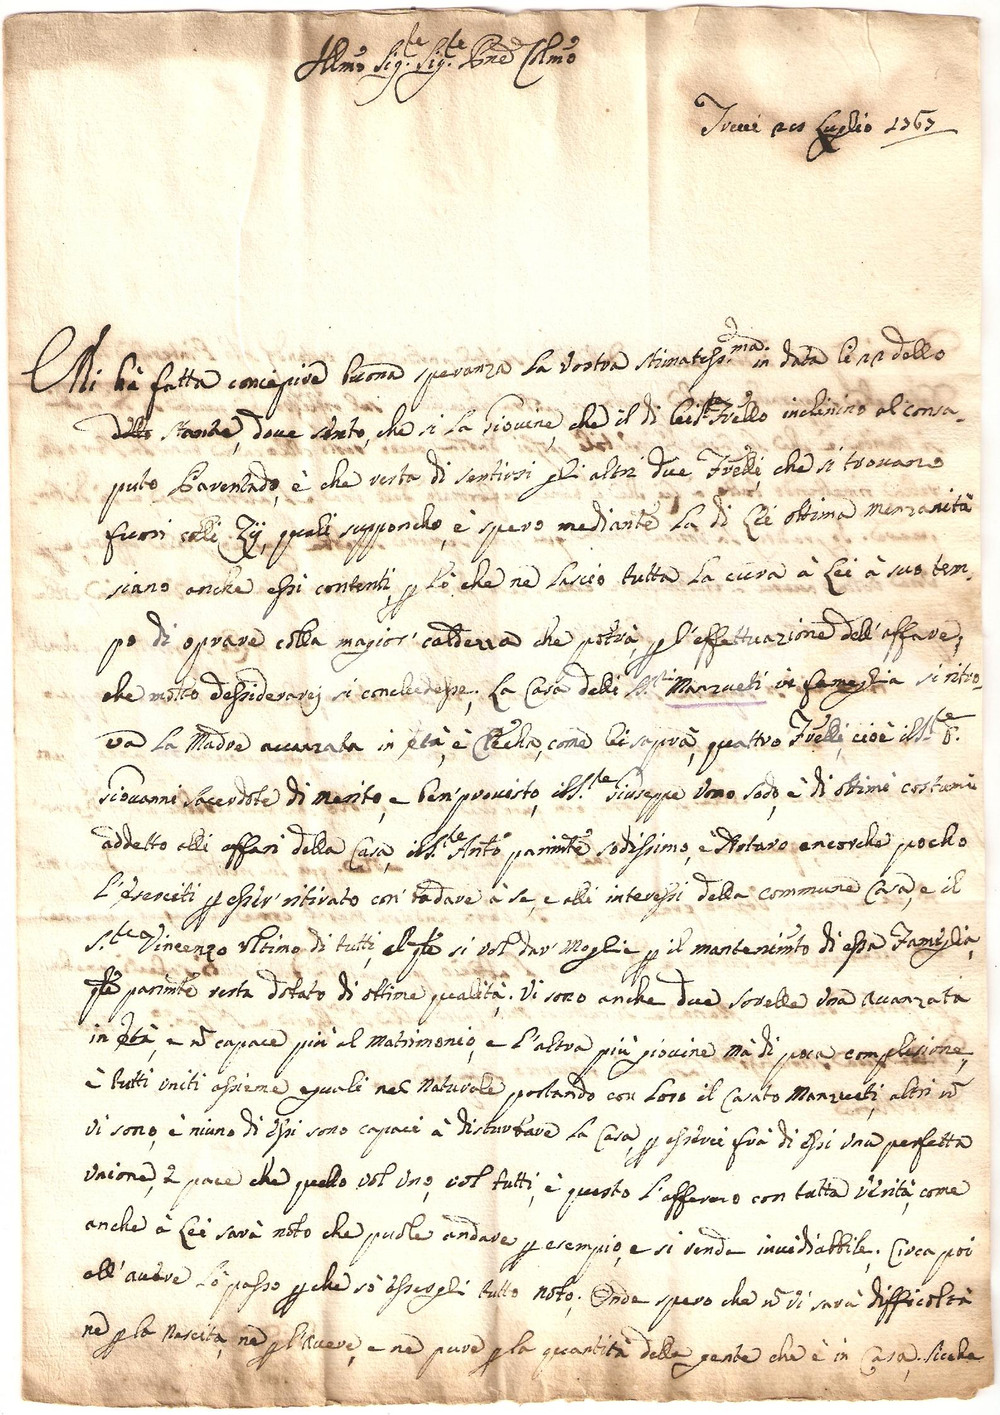 Illmo Sig.re Sig.re Pne Colmo
Trevi 20 Luglio 1767
Mi hà fatta concepire buona speranza la vostra stimatiss.ma in data li 11 dello
stante, dove sento, che si la Giovine, che il di lei Sr.e Frello inclinino al consa-
puto Parentado, è che resta di sentirsi gli altri due Frelli, che si trovano
fuori colli Zij, quali supponcho, è spero mediante la di Lei ottima menzanità
siano anche essi contenti, p lo che ne lascio tutta la cura à Lei à suo tem-
po di oprare colla magior' caldezza che potrà, p l'effettuazione dell'affare,
che molto dessiderarej si concludesse. La Casa delli SS.ri Manzueti in fameglia si ritro-
va la Madre avanzata in età, è Ciecha, come lei saprà, quattro Frelli, cioè il S.re D.
Giovanni Sacerdote di merito, e ben' provisto, il S.re Giuseppe Uomo sodo, è di ottimi costumi
addetto alli affari della Casa, il S.re Antо̃ parimte sodissimo, è Notaro encorche pocho
l'eserciti p essir' ritirato con' badare à se, e alli interessi della commune Casa, e il
S.re Vincenzo ultimo di tutti, al qle si vol' dar' Moglie p il mantenimto di essa Famiglia,
qle parimte resta dotato di ottime qualità. Vi sono anche due sorelle una avanzata
in Età, e ñ capace più al Matrimonio, e l'altra più giovine mà di poca complesione,
è tutti uniti assieme equali nel naturale portando con loro il Casato Manzueti, altri ñ
vi sono, è niuno di essi sono capaci à disturbare la Casa, p esserci frà di essi una perfetta
unione, è pace che quello vol' uno, vol' tutti, è questo l'affermo con tutta verità, come
anche à Lei sarà noto che puole andare p esempio, e si rende invidiabbile. Circa poi
all'avere lo passo p che sò essergli tutto noto. Onde spero che ñ vi sarà difficoltà
nè p la Nascita, nè p l'Avere, e nè pure p la quantità della gente che è in Casa. Siche